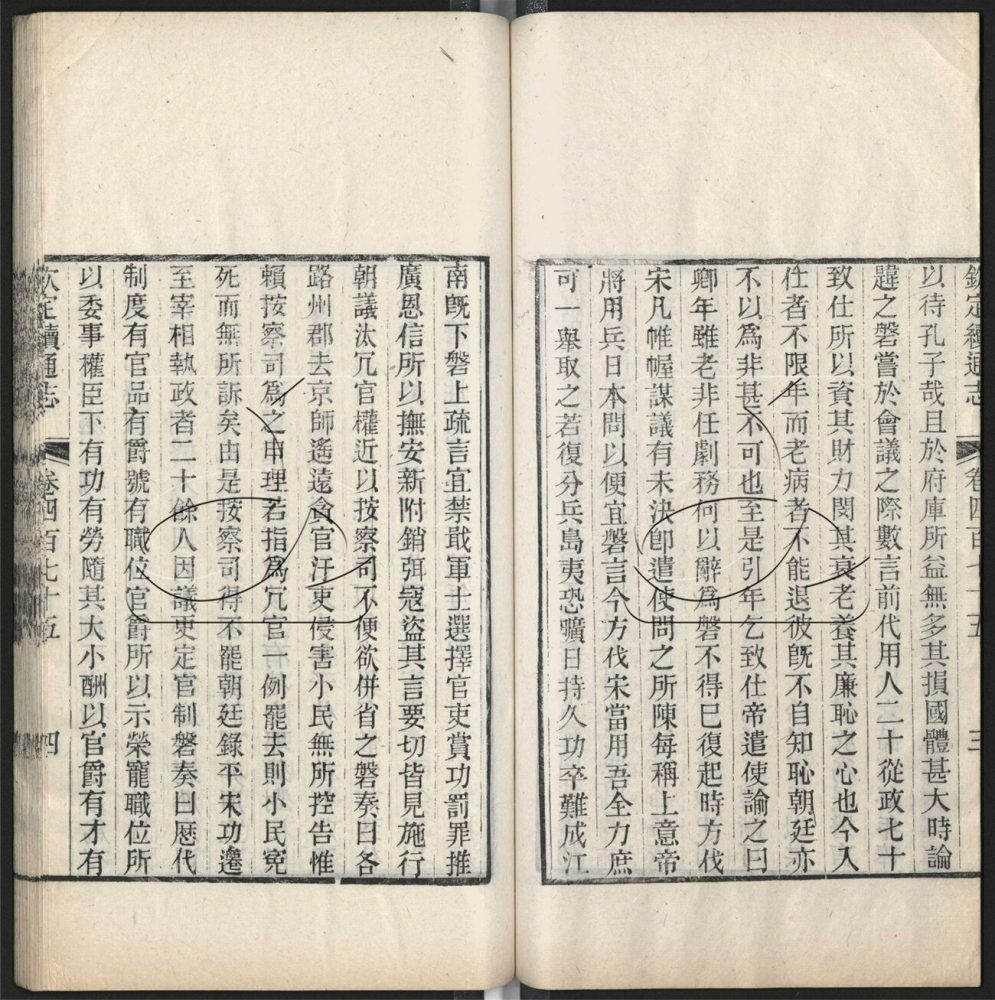 欽定續通志 卷四百七十五 三
以待孔子哉且於府庫所益無多其損國體甚大時論
韙之磐嘗於會議之際數言前代用人二十從政七十
致仕所以資其財力閔其衰老養其廉恥之心也今入
仕者不限年而老病者不能退彼旣不自知恥朝廷亦
不以爲非甚不可也至是引年乞致仕帝遣使諭之曰
卿年雖老非任劇務何以辭爲磐不得已復起時方伐
宋凡帷幄謀議有未決卽遣使問之所陳每稱上意帝
將用兵日本問以便宜磐言今方伐宋當用吾全力庶
可一舉取之若復分兵島夷恐曠日持久功卒難成江
南旣下磐上疏言宜禁戢軍士選擇官吏賞功罰罪推
廣恩信所以撫安新附銷弭寇盜其言要切皆見施行
朝議汰冗官權近以按察司不便欲併省之磐奏曰各
路州郡去京師遙遠貪官汙吏侵害小民無所控告惟
賴按察司爲之申理若指爲冗官一例罷去則小民冤
死而無所訴矣由是按察司得不罷朝廷錄平宋功遷
至宰相執政者二十餘人因議更定官制磐奏曰歷代
制度有官品有爵號有職位官爵所以示榮寵職位所
以委事權臣下有功有勞隨其大小酬以官爵有才有
欽定續通志 卷四百七十五 四